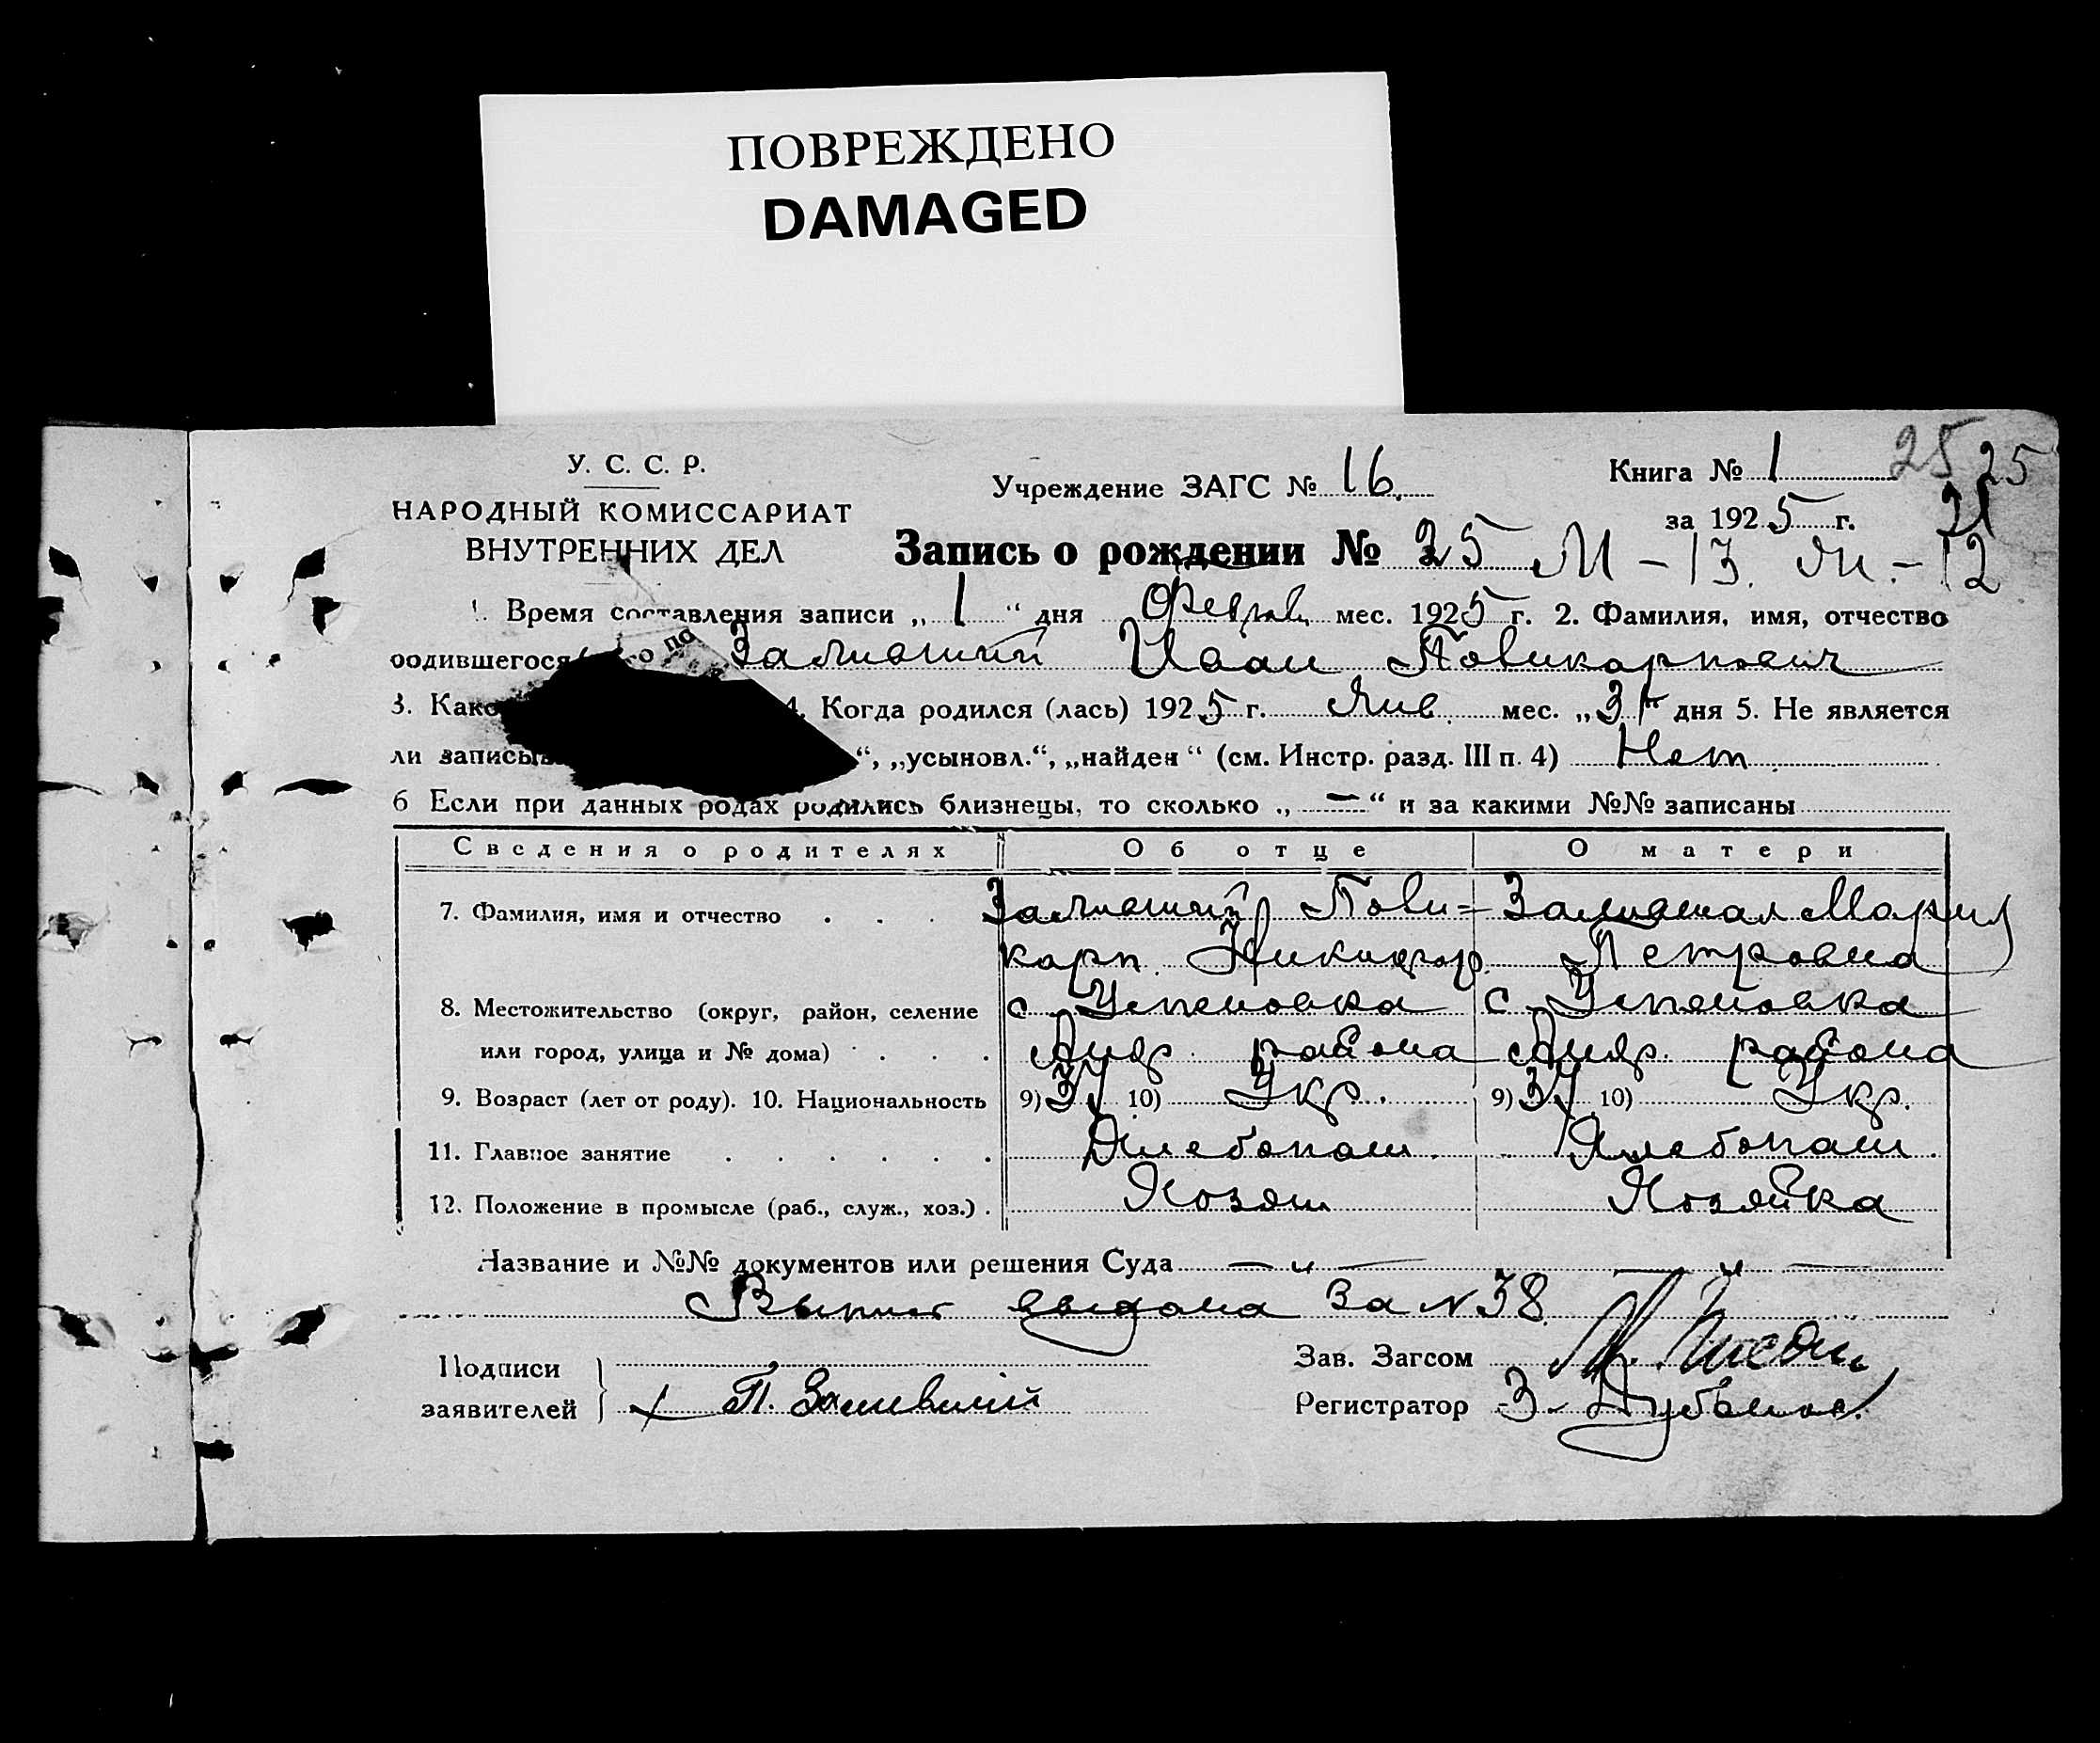 ПОВРЕЖДЕНО
DAMAGED
У. С. С. Р.
НАРОДНЫЙ КОМИССАРИАТ
ВНУТРЕННИХ ДЕЛ
Учреждение ЗАГС № 16.
Книга № 1 25 25
за 1925 г. 21
Запись о рождении № 25 М - 13. Ж. - 12
1. Время составления записи „ 1 “ дня Феврал. мес. 1925 г. 2. Фамилия, имя, отчество
родившегося Иван Поликарпович
3. Како 4. Когда родился (лась) 1925 г. Янв. мес. „31“ дня 5. Не является
ли записыв “, „усыновл.“, „найден“ (см. Инстр. разд. III п. 4) Нет.
6 Если при данных родах родились близнецы, то сколько „ — “ и за какими №№ записаны
Сведения о родителях Об отце О матери
7. Фамилия, имя и отчество . . . Поли= Мария
карп. Никифор. Петровна
8. Местожительство (округ, район, селение с. Успеновка с. Успеновка
или город, улица и № дома) . . . района района
9. Возраст (лет от роду). 10. Национальность 9) 10) Укр. 9) 10) Укр.
11. Главное занятие . . . . . . Хлебопаш. Хлебопаш.
12. Положение в промысле (раб., служ., хоз.) . Хозяин Хозяйка
Название и №№ документов или решения Суда — „ — — „ —
выдана за № 38
Подписи
заявителей х П.
Зав. Загсом
Регистратор З.